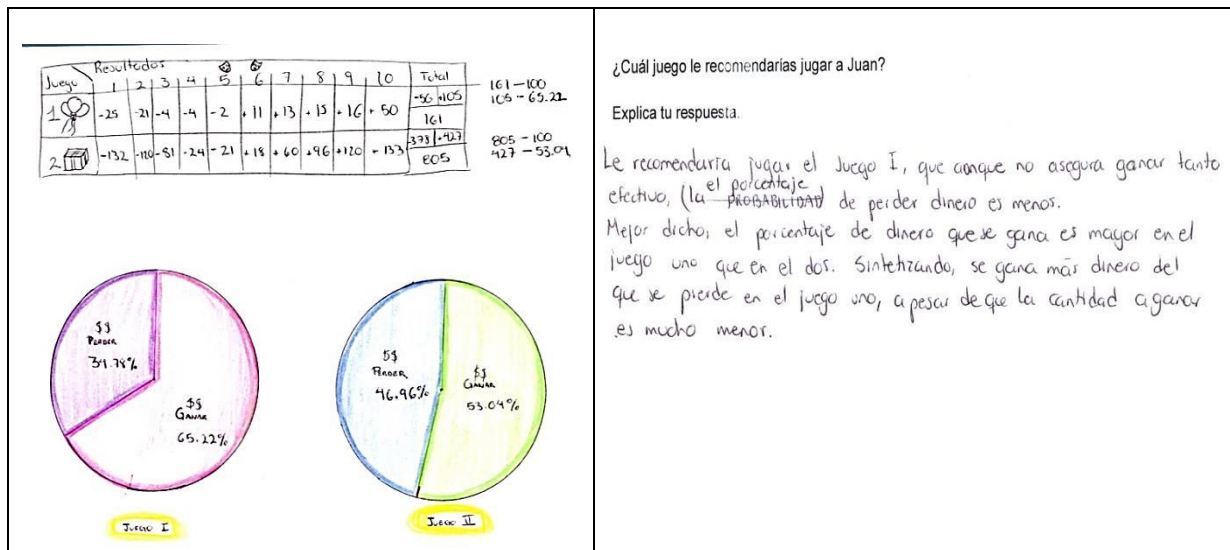 Resultados
Juego 1 2 3 4 5 6 7 8 9 10 Total
1 -25 -21 -4 -4 -2 +11 +13 +15 +16 +50 -56 +105
161
2 -132 -120 -81 -24 -21 +18 +60 +96 +120 +133 -378 +427
805
161 - 100
105 - 65.22
805 - 100
427 - 53.04
$$
PERDER
34.78%
$$
GANAR
65.22%
JUEGO I
$$
PERDER
46.96%
$$
GANAR
53.04%
JUEGO II
¿Cuál juego le recomendarías jugar a Juan?
Explica tu respuesta.
Le recomendaría jugar el Juego I, que aunque no asegura ganar tanto
efectivo, (la PROBABILIDAD el porcentaje) de perder dinero es menos.
Mejor dicho, el porcentaje de dinero que se gana es mayor en el
juego uno que en el dos. Sintetizando, se gana más dinero del
que se pierde en el juego uno, a pesar de que la cantidad a ganar
es mucho menor.